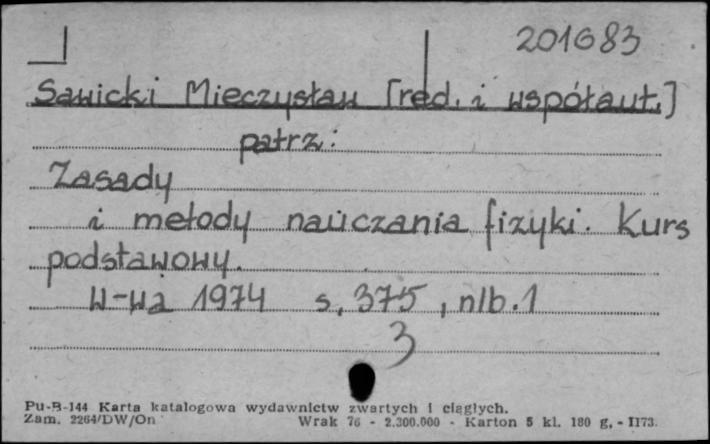 201683
Sawicki Mieczysław [red. i współaut.]
patrz:
Zasady
i metody nauczania fizyki. Kurs
podstawowy.
W-wa 1974 s. 375, nlb. 1
3
Pu-B-144 Karta katalogowa wydawnictw zwartych i ciągłych.
Zam. 2264/DW/On Wrak 76 - 2.300.000 - Karton 5 kl. 180 g. - I173.